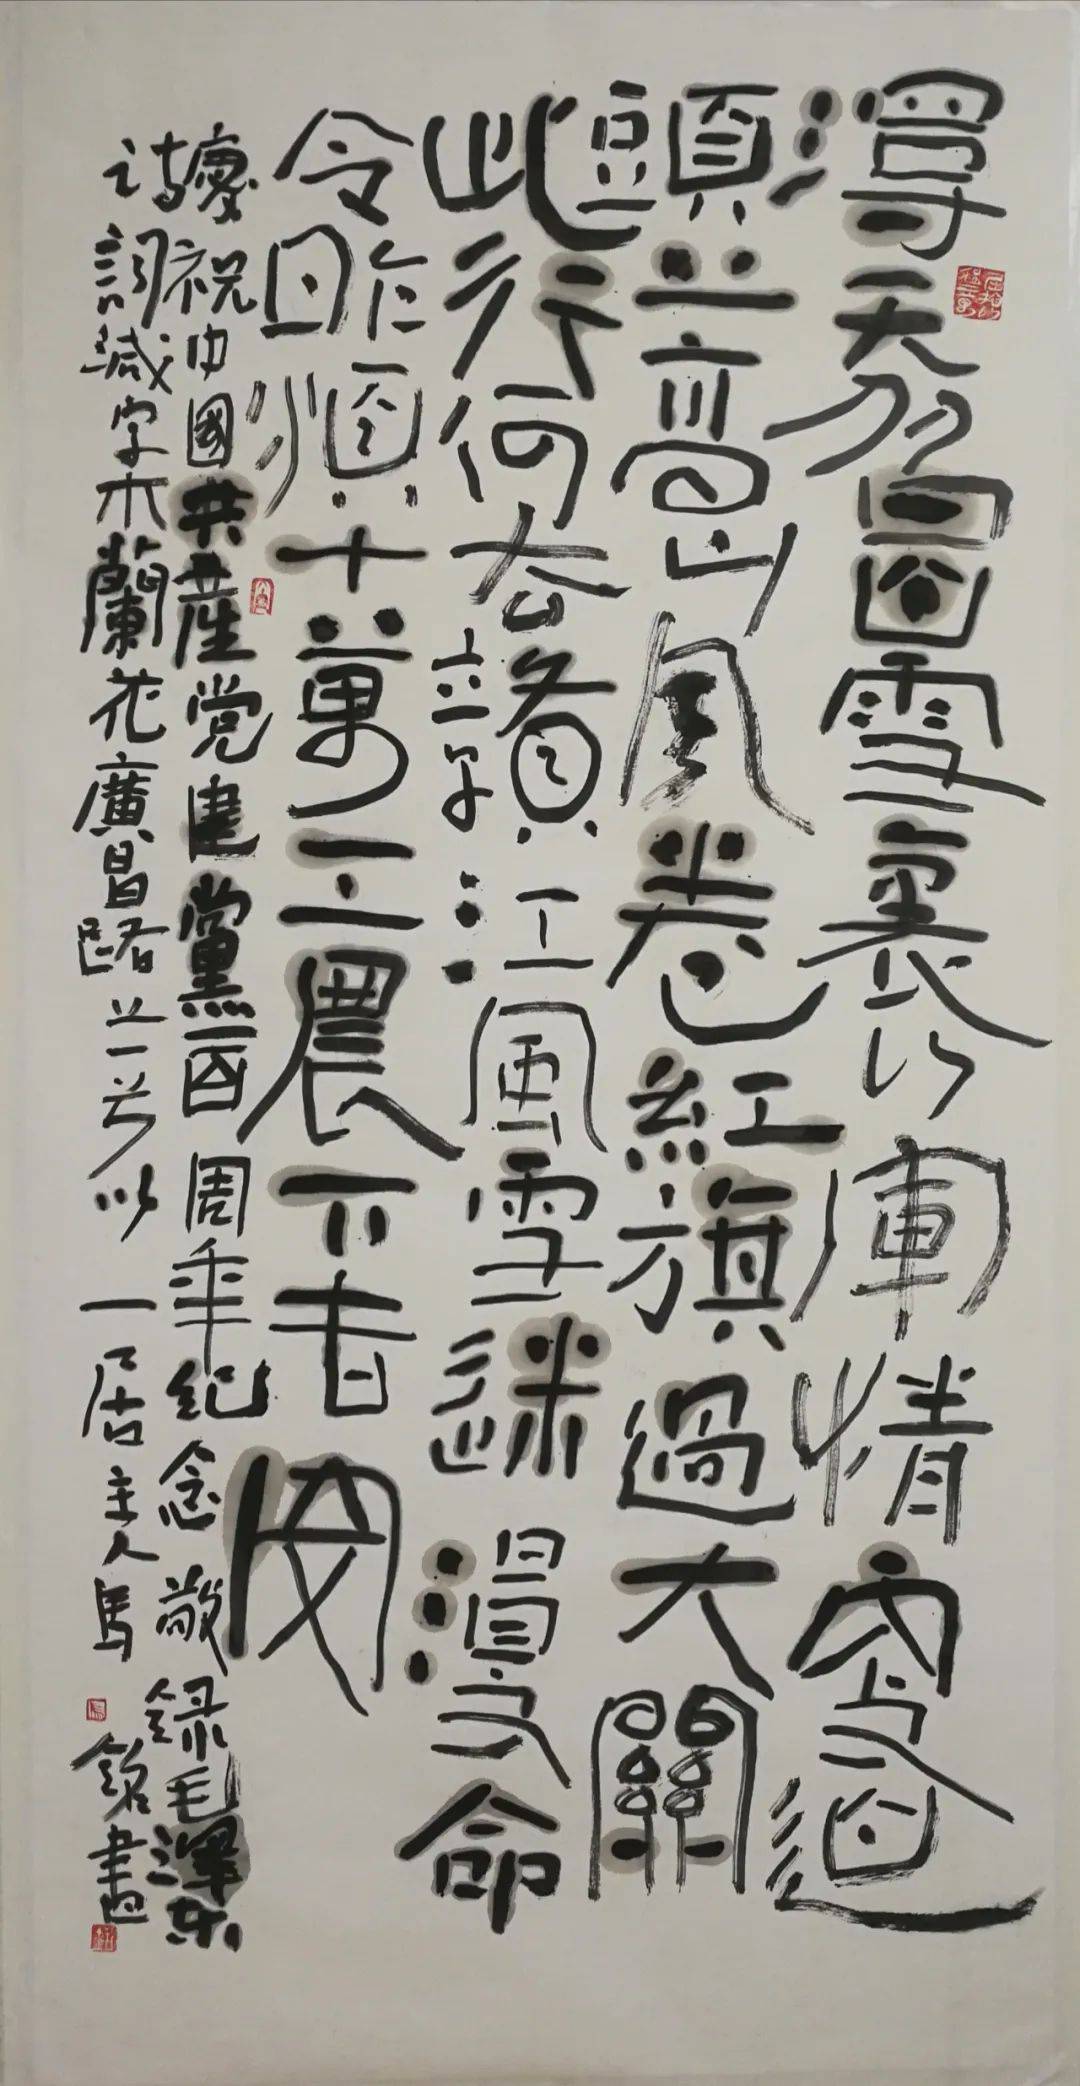 漫天皆白雪裏行軍情更迫
頭上高山風卷紅旗過大關
此行何去贛江風雪迷漫命
令昨頒十萬工農下吉安
慶祝中國共産党建黨一百周年纪念敬録毛澤東
诗詞減字木蘭花廣昌路上一首 一居主人馬銘書